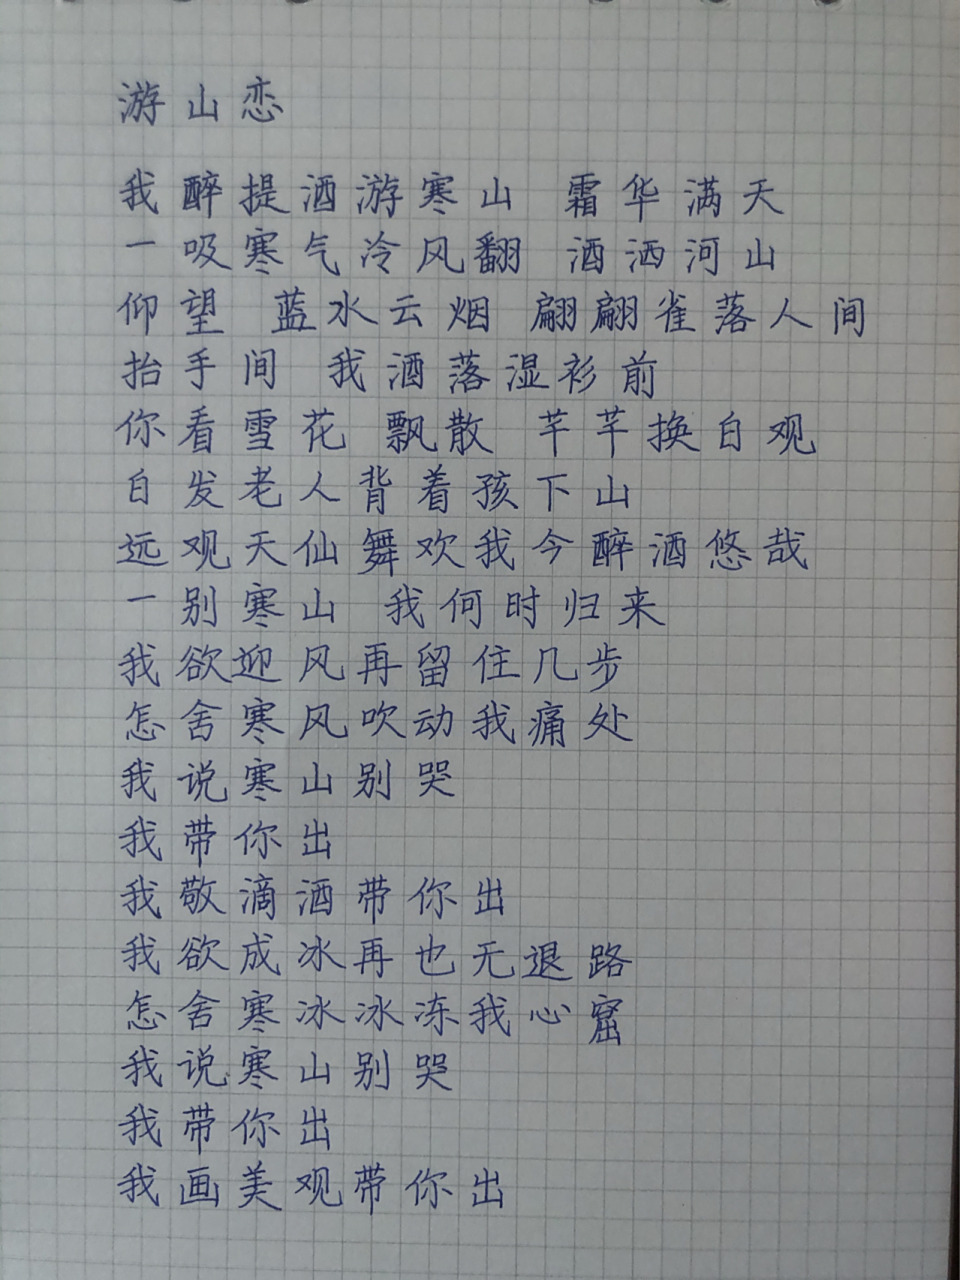 游山恋
我醉提酒游寒山 霜华满天
一吸寒气冷风翻 酒洒河山
仰望 蓝水云烟 翩翩雀落人间
抬手间 我酒落湿衫前
你看雪花 飘散 芊芊换白观
白发老人背着孩下山
远观天仙舞欢我今醉酒悠哉
一别寒山 我何时归来
我欲迎风再留住几步
怎舍寒风吹动我痛处
我说寒山别哭
我带你出
我敬滴酒带你出
我欲成冰再也无退路
怎舍寒冰冰冻我心窟
我说寒山别哭
我带你出
我画美观带你出